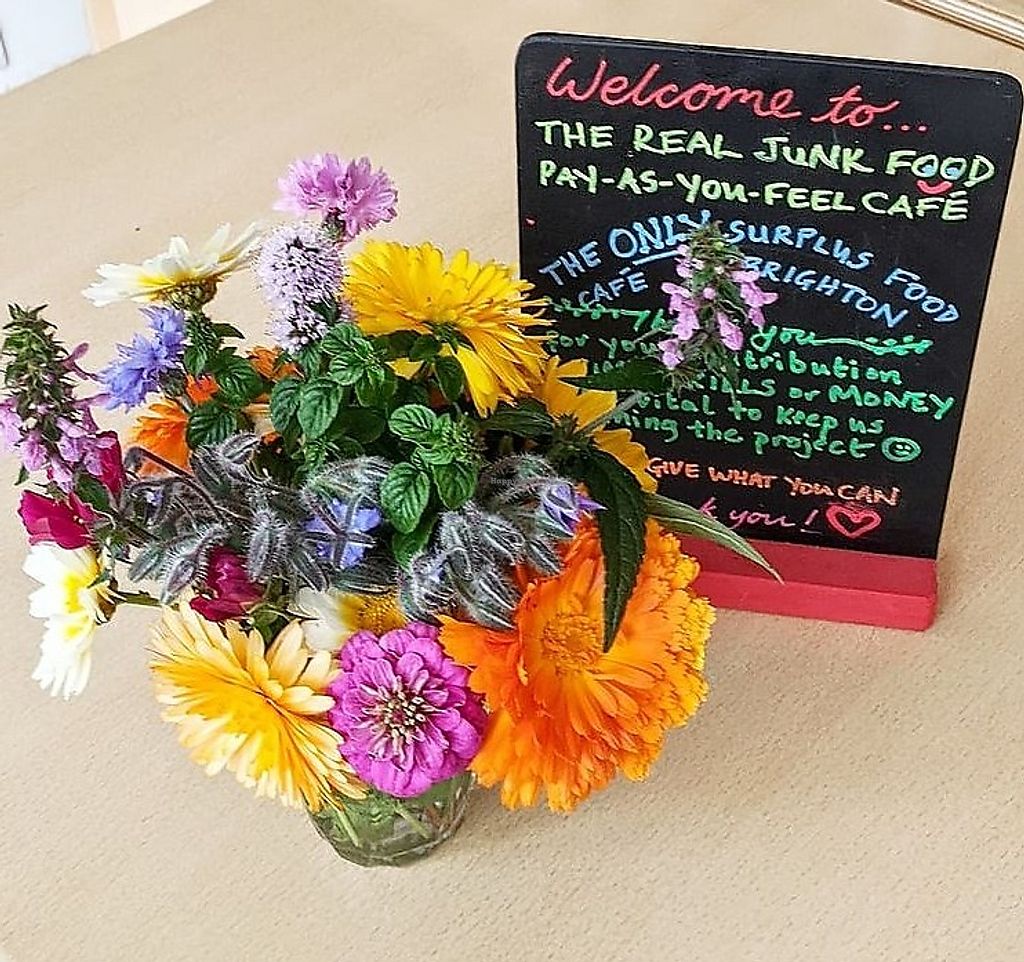 Welcome to...
THE REAL JUNK FOOD
PAY-AS-YOU-FEEL CAFÉ
THE ONLY SURPLUS FOOD
CAFÉ BRIGHTON
you
for your
or MONEY
to keep us
the project
GIVE WHAT YOU CAN
you!